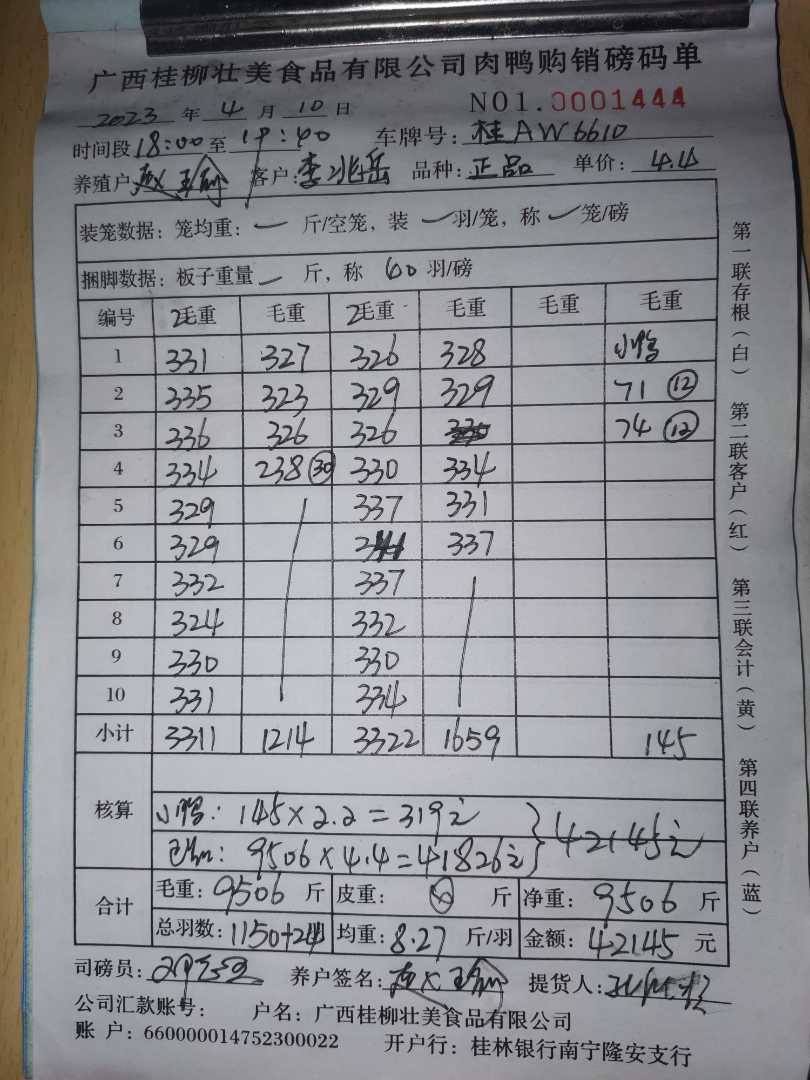 广西桂柳壮美食品有限公司肉鸭购销磅码单
2023 年 4 月 10 日 NO1.0001444
时间段 18:00 至 19:40 车牌号: 桂AW6610
养殖户: 客户: 李兆岳 品种: 正品 单价: 4.4
装笼数据: 笼均重: 一 斤/空笼, 装 一 羽/笼, 称 一 笼/磅
捆脚数据: 板子重量 一 斤, 称 60 羽/磅
编号 毛重 毛重 毛重 毛重 毛重 毛重
1 331 327 326 328 小鸭
2 335 323 329 329 71 ⑫
3 336 326 326 74 ⑫
4 334 238 ㉚ 330 334
5 329 337 331
6 329 337
7 332 337
8 324 332
9 330 330
10 331 334
小计 3311 1214 3322 1659 145
核算
小鸭: 145×2.2=319元
9506×4.4=41826元 } 42145元
合计 毛重: 9506 斤 皮重: 斤 净重: 9506 斤
总羽数: 1150+24 均重: 8.27 斤/羽 金额: 42145 元
司磅员: 养户签名: 提货人:
公司汇款账号: 户名: 广西桂柳壮美食品有限公司
账 户: 660000014752300022 开户行: 桂林银行南宁隆安支行
第一联存根(白) 第二联客户(红) 第三联会计(黄) 第四联养户(蓝)